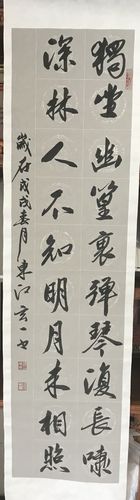 獨坐幽篁裏彈琴復長嘯
深林人不知明月來相照
歲在戊戌春月東江